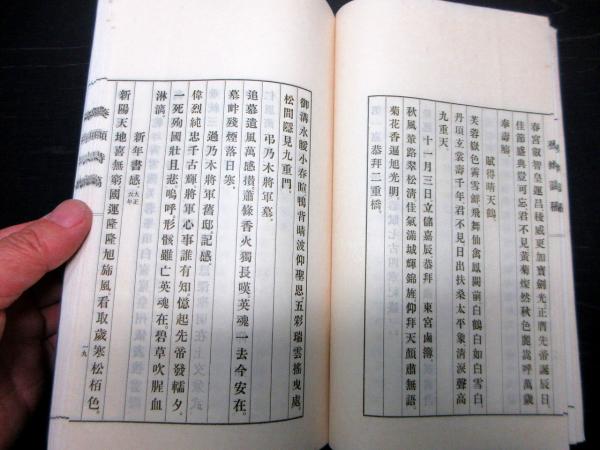 春宮叡智皇運昌稜威更加寶劍光正酒先帝誕辰日
佳節盛典豈可忘君不見黃菊燦然秋色麗嵩呼萬歲
奉壽觴。
賦得晴天鶴。
芙蓉嶽色霽雪鮮飛舞仙禽鳳闕前白鶴白如白雪白
丹頂玄裳壽千年君不見日出扶桑太平象清淚聲高
九重天。
十一月三日立儲嘉辰恭拜 東宮鹵簿。
秋風輦路翠松清佳氣滿城輝錦旌仰拜天顏肅無語。
菊花香逼旭光明。
恭拜二重橋。
御溝水暖小春暄鴨背晴波仰聖恩。五彩瑞雲搖曳處。
松間隱見九重門。
弔乃木將軍墓。
追慕遺風萬感攢。蕭條香火獨長嘆英魂一去今安在。
墓畔殘煙落日寒。
三過乃木將軍舊邸記感。
偉烈純忠千古輝將軍心事誰有知憶起先帝發轜夕。
一死殉國壯且悲嗚呼形骸雖亡英魂在。碧草吹腥血
淋漓。
新年書感。大正六年
新陽天地喜無窮國運隆隆旭旆風看取歲寒松栢色。
一九